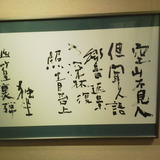 空山不見人
但聞人語
響返景入
深林復
照青苔上
独坐
幽篁裏